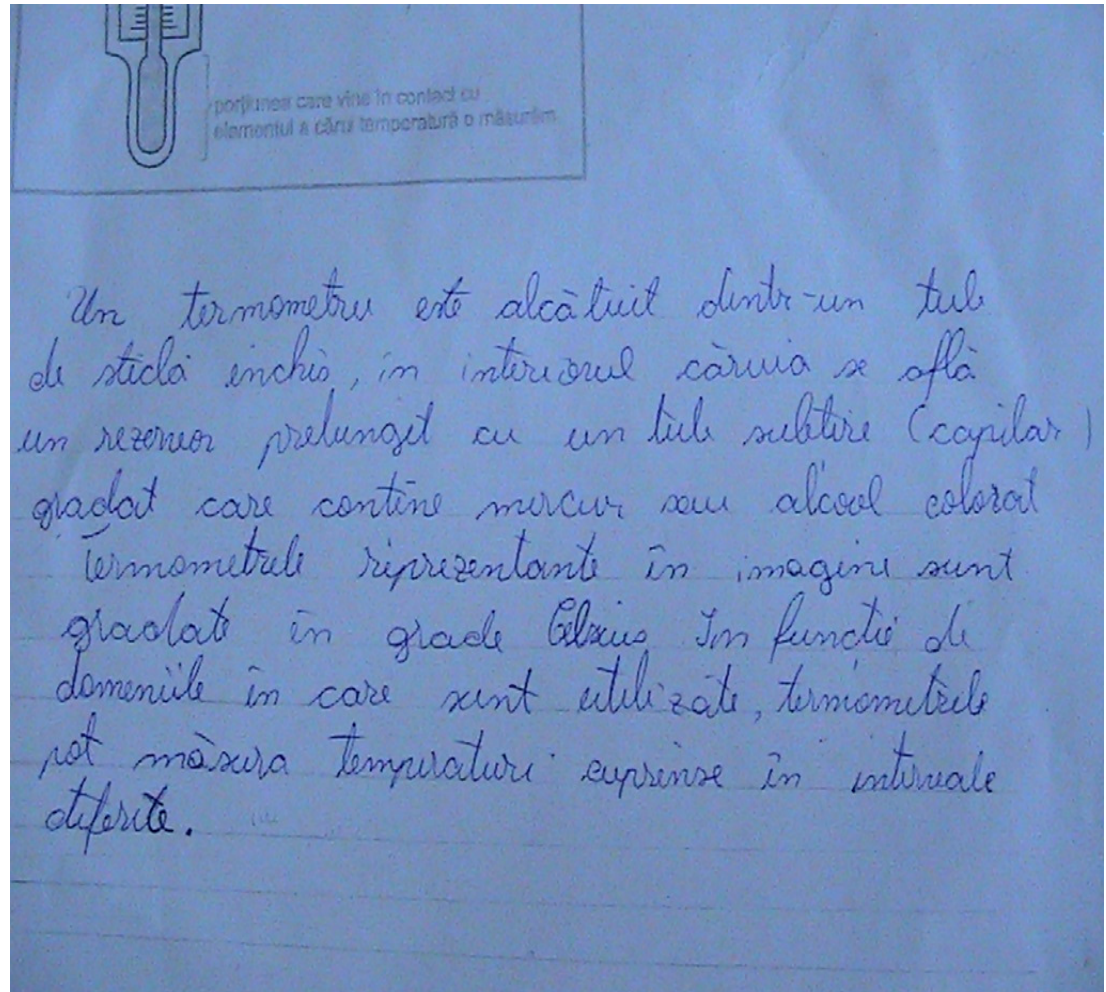 porțiunea care vine în contact cu
elementul a cărui temperatură o măsurăm
Un termometru este alcătuit dintr-un tub
de sticlă inchis, în interiorul căruia se află
un rezervor prelungit cu un tub subtire (capilar)
gradat care contine mercur sau alcool colorat
Termometrele reprezentante în imagine sunt
gradate în grade Celsius In functie de
domeniile în care sunt utilizate, termometrele
pot măsura temperaturi cuprinse în intervale
diferite.